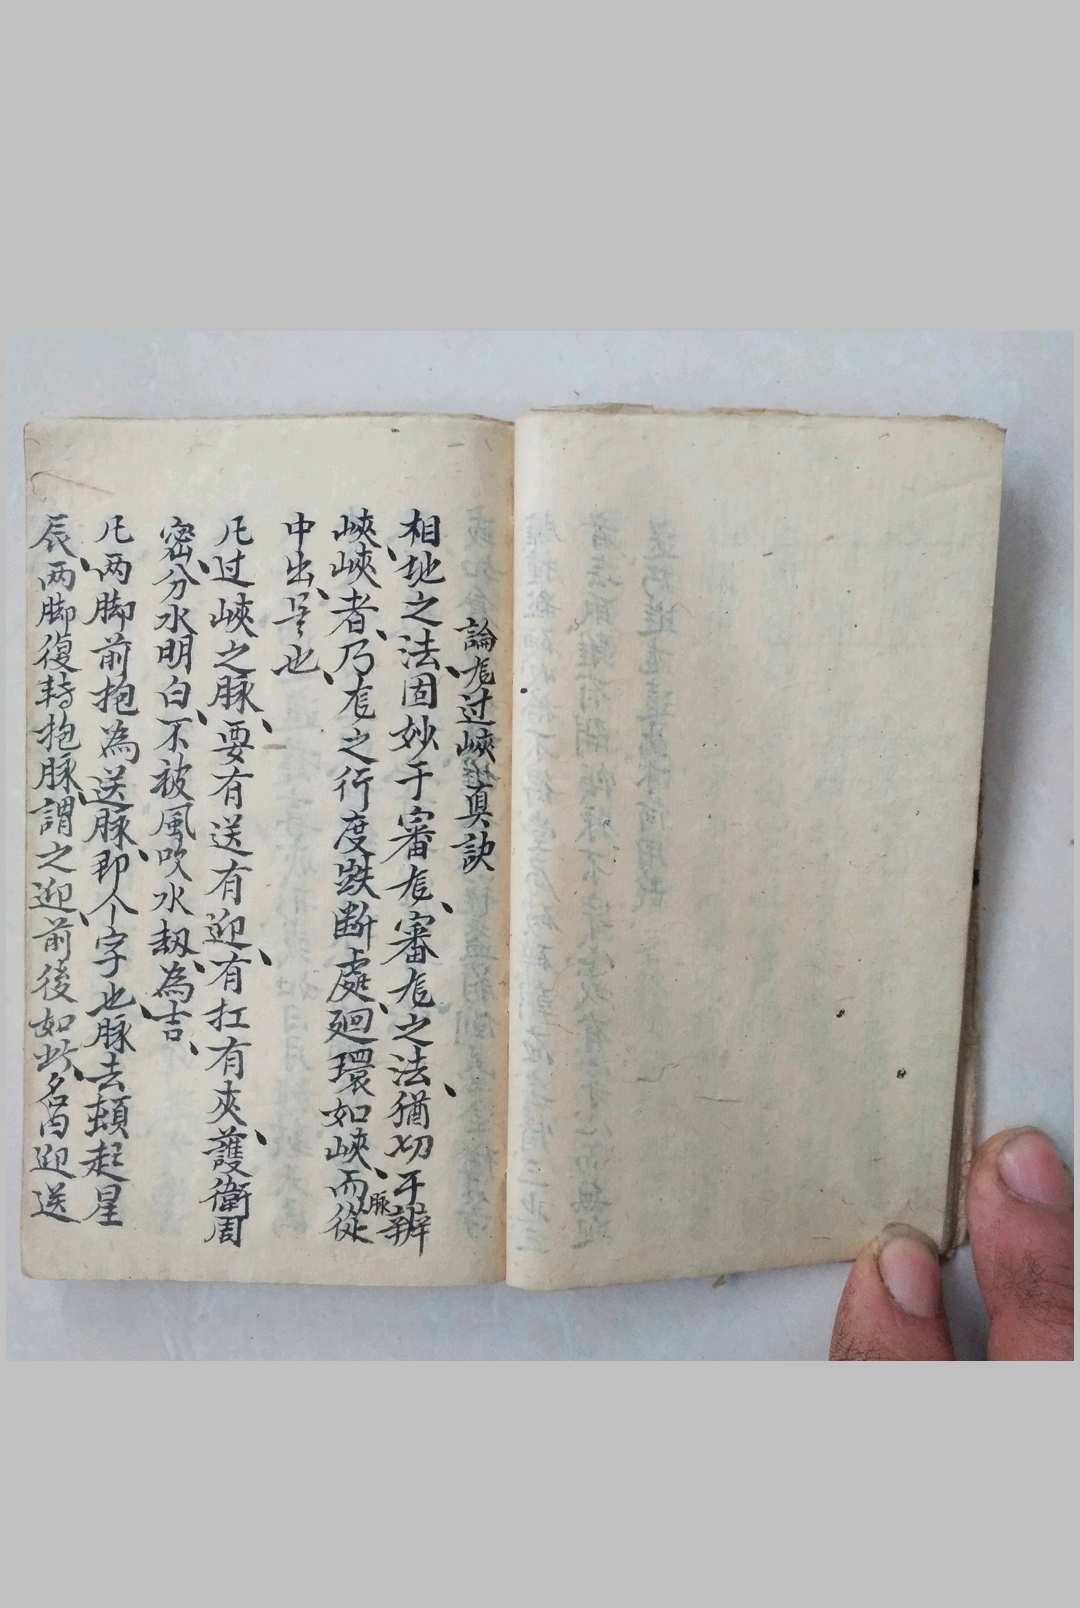 論龙过峽真訣
相地之法固妙于審龙審龙之法猶切于辨
峽峽者乃龙之行度跌断處廻環如峽而脉從
中出是也
凡过峽之脉要有送有迎有扛有夾護衛周
密分水明白不被風吹水刼為吉
凡两脚前抱為送脉即个字也脉去頓起星
辰两脚復轉抱脉謂之迎前後如此名曰迎送